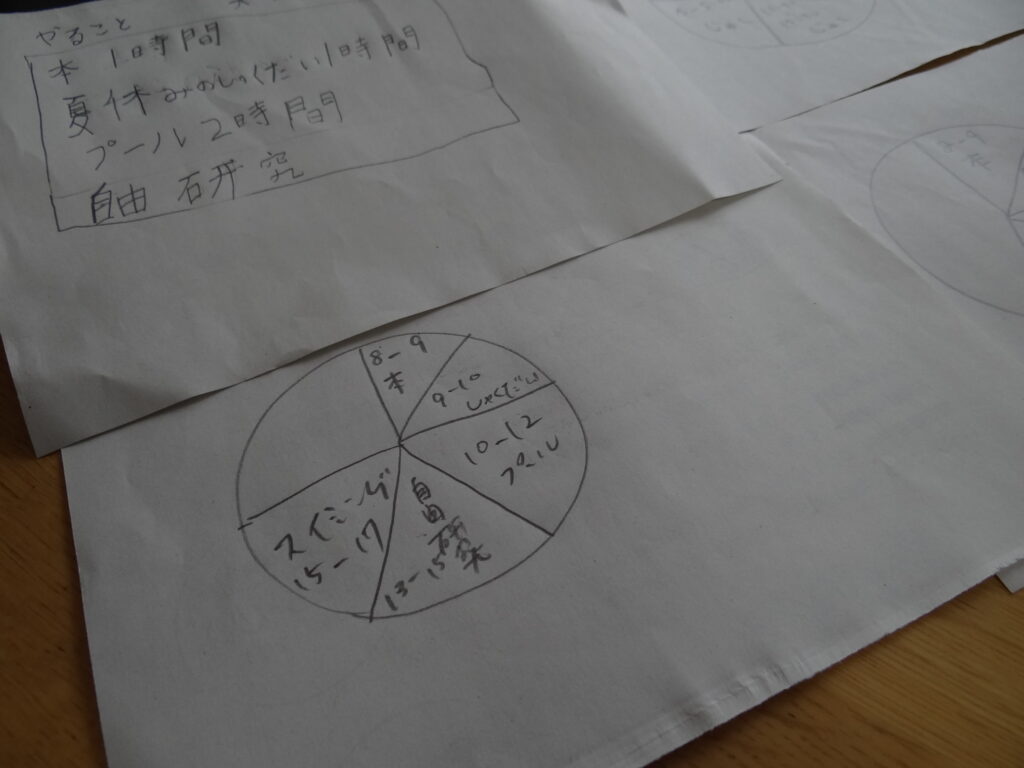 やること
本 1時間
夏休みのしゅくだい1時間
プール2時間
自由研究
8-9
本
9-10
しゅくだい
10-12
プール
自由
研究
13-15
スイミング
15-17